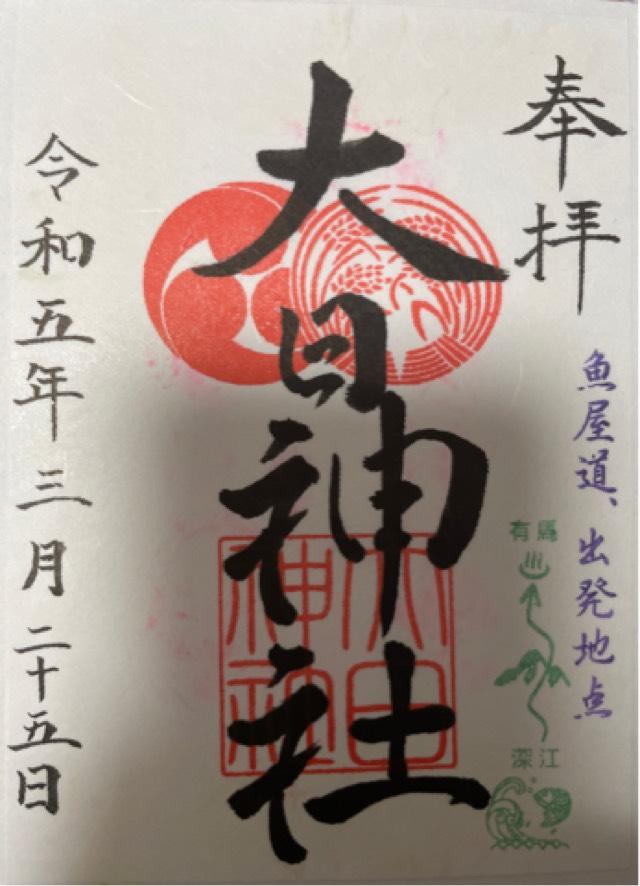 奉拝
魚屋道、出発地点
有馬
深江
大日神社
大日神社
令和五年三月二十五日